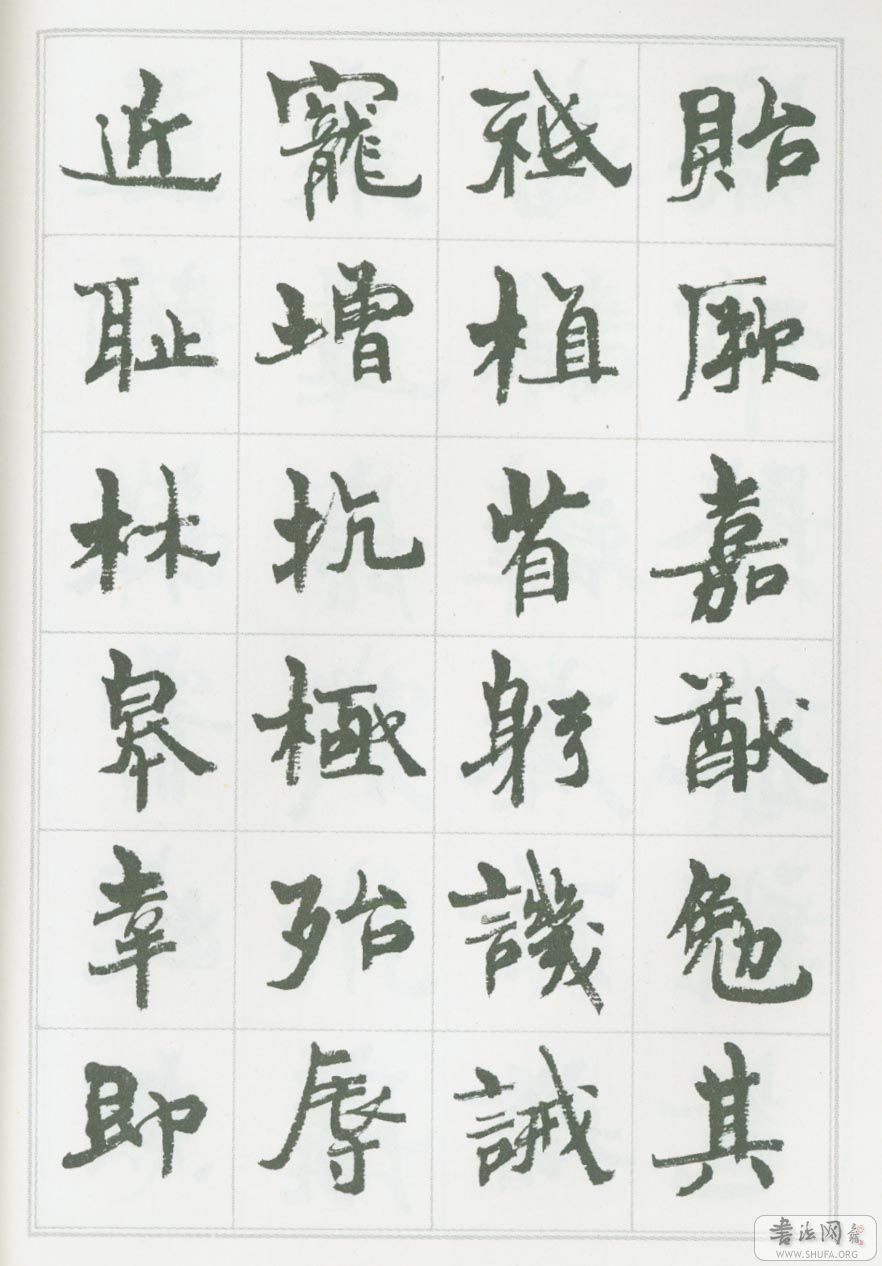 貽厥嘉猷勉其
祗植省躬譏誡
寵增抗極殆辱
近恥林皋幸即
書法网
WWW.SHUFA.ORG